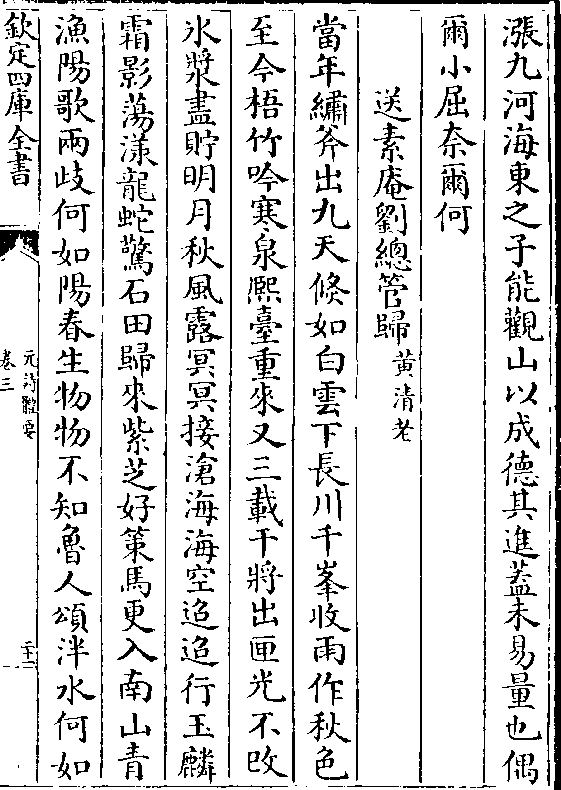 漲九河海東之子能觀山以成德其進蓋未易量也偶
爾小屈奈爾何
送素庵劉總管歸黃清老
當年繡斧出九天倏如白雲下長川千峯收雨作秋色
至今梧竹吟寒泉熙臺重來又三載干將出匣光不改
氷漿盡貯明月秋風露冥冥接滄海海空迢迢行玉麟
霜影蕩漾龍蛇驚石田歸來紫芝好策馬更入南山青
漁陽歌兩歧何如陽春生物物不知魯人頌泮水何如
欽定四庫全書
元詩體要
卷三
二十一